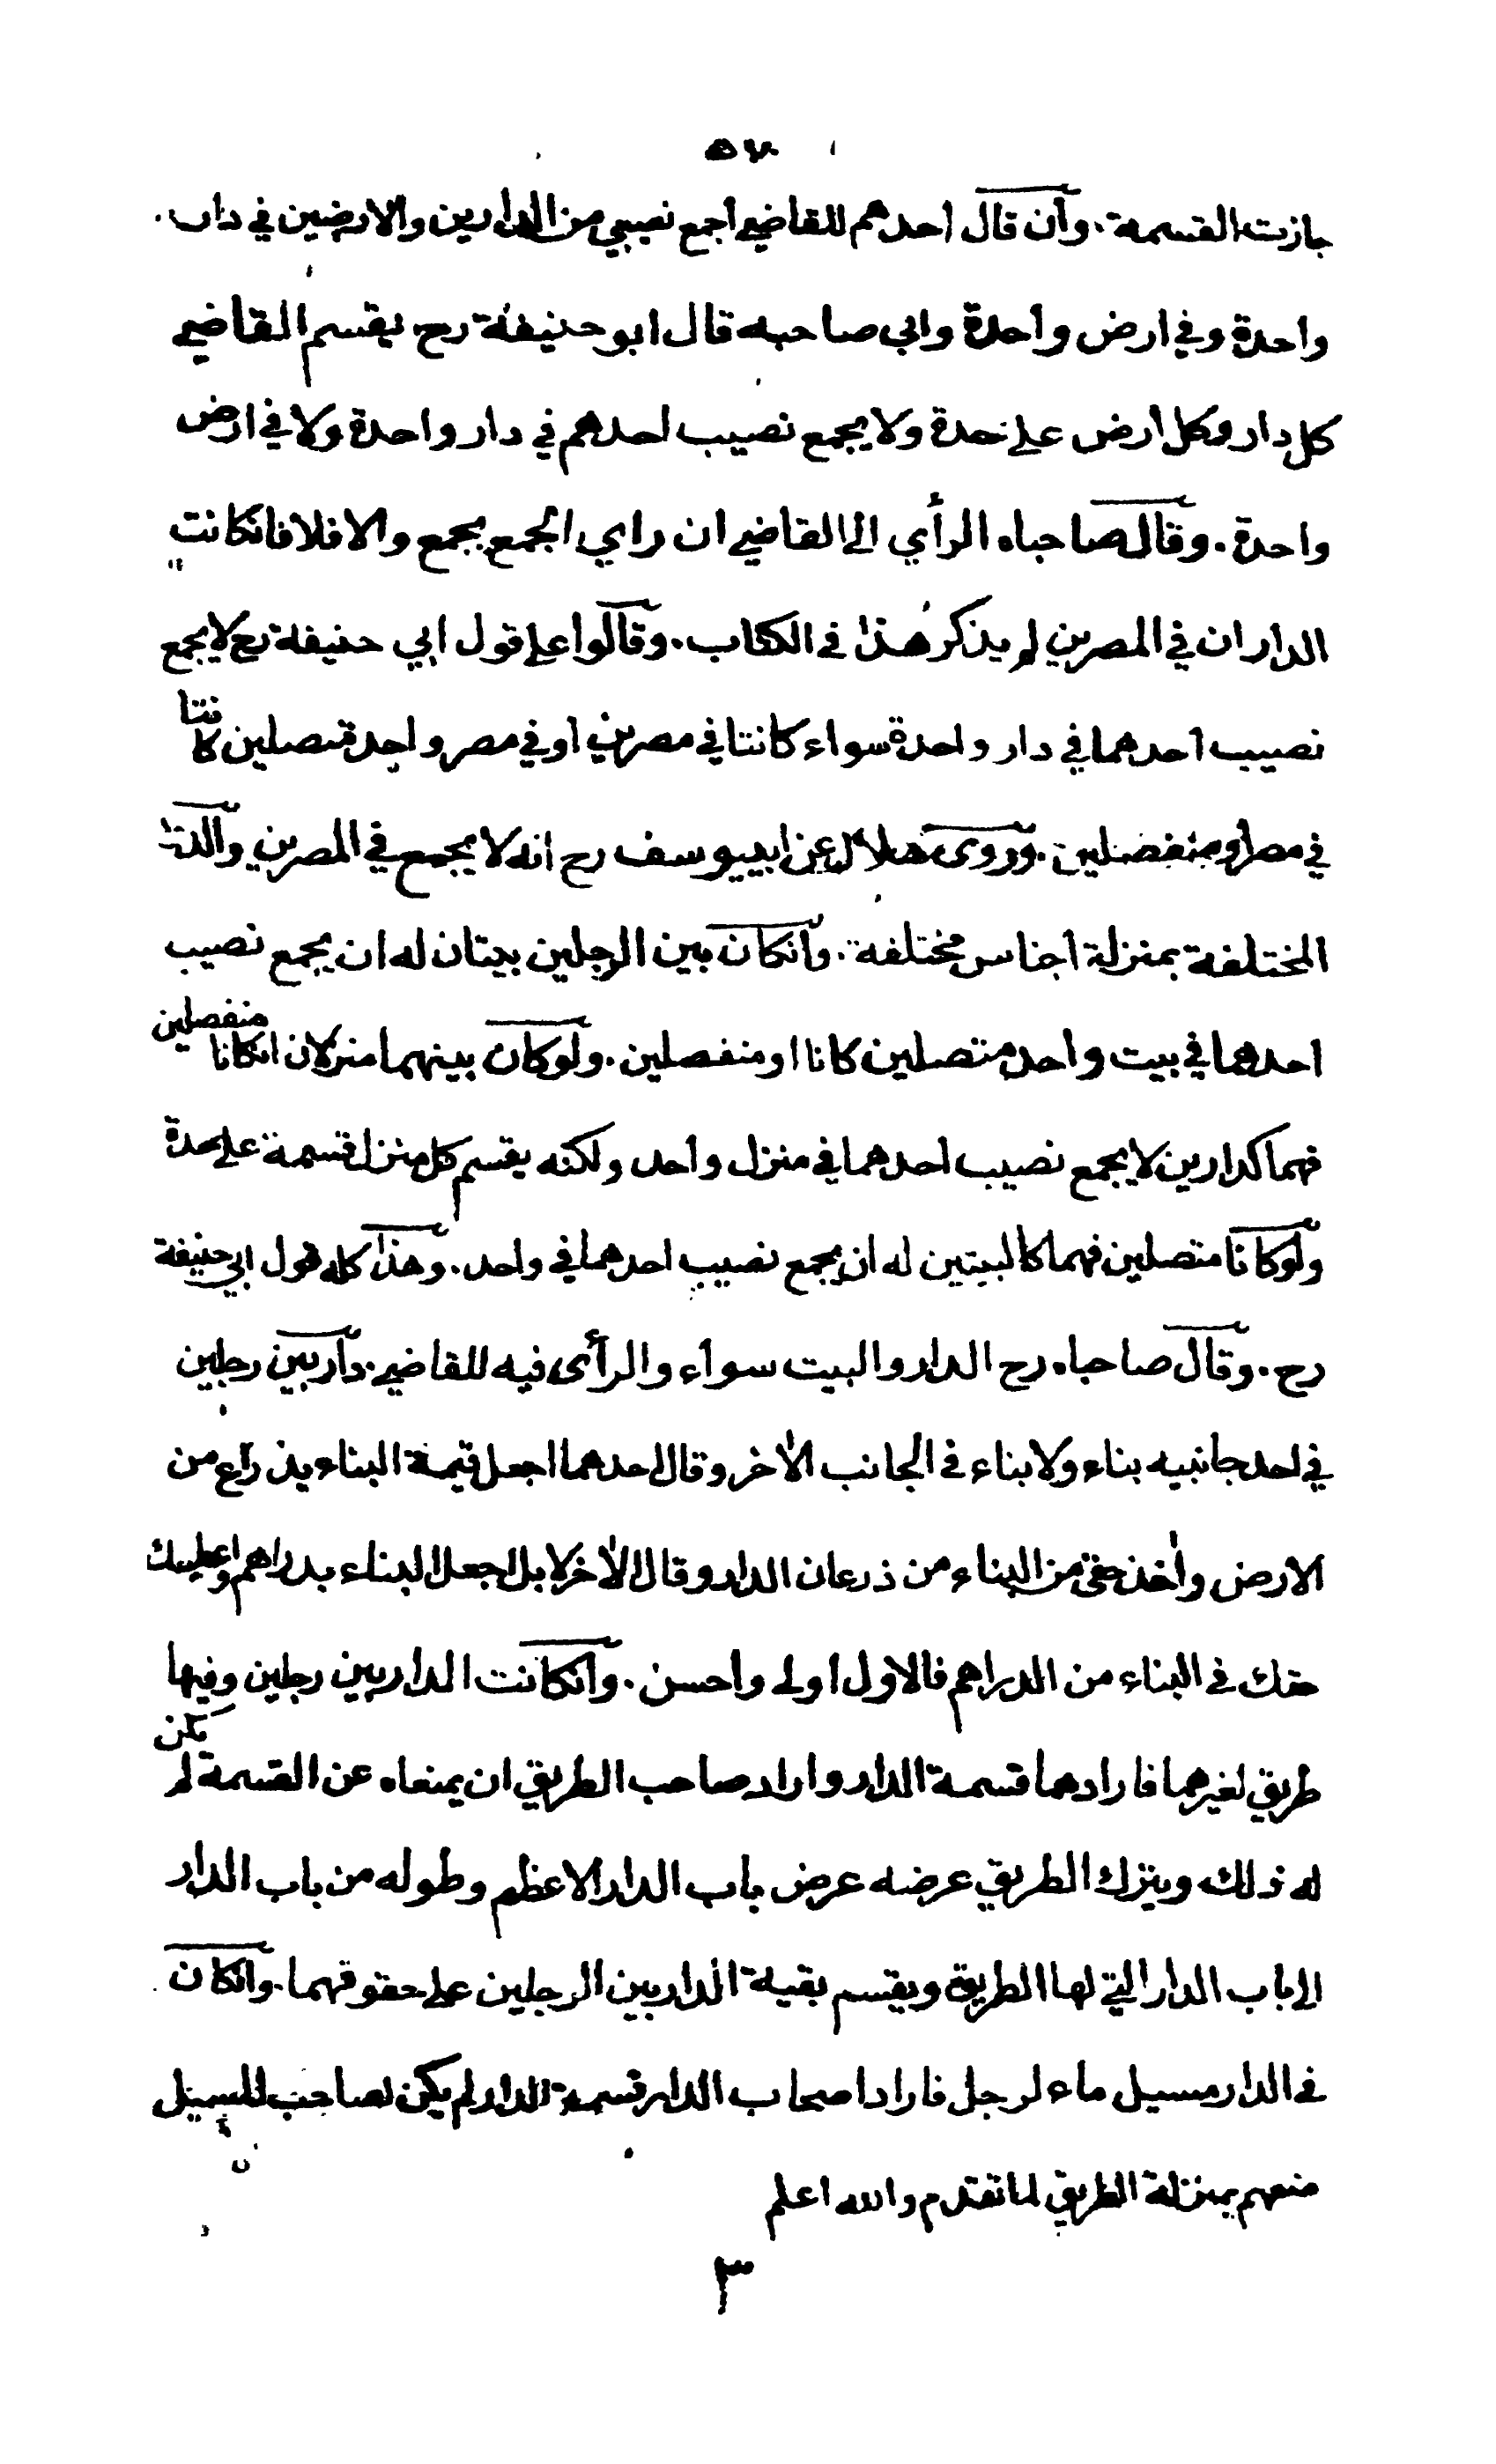 جازت القسمة . وان قال احدهم للقاضي اجمع نصيبي من الدارين والارضين في دار
واحدة وفي ارض واحدة وابى صاحبه قال ابو حنيفة رح يقسم القاضي
كل دار وكل ارض على حدة ولا يجمع نصيب احدهم في دار واحدة ولا في ارض
واحدة . وقال صاحباه الرأي الى القاضي ان راي الجمع يجمع والا فلا فانكانت
الداران في المصرين لم يذكر هذا في الكتاب . وقالوا على قول ابي حنيفة رح لا يجمع
نصيب احدهما في دار واحدة سواء كانتا في مصرين او في مصر واحد متصلين كانتا
في مصر او منفصلين . وروى هلال عن ابي يوسف رح انه لا يجمع في المصرين والدور
المختلفة بمنزلة اجناس مختلفة . وانكان بين الرجلين بيتان له ان يجمع نصيب
احدهما في بيت واحد متصلين كانا او منفصلين . ولو كان بينهما منزلان انكانا منفصلين
فهما كدارين لا يجمع نصيب احدهما في منزل واحد ولكنه يقسم كل منزل قسمة على حدة
ولو كانا متصلين فهما كالبيتين له ان يجمع نصيب احدهما في واحد . وهذا كله قول ابي حنيفة
رح . وقال صاحباه رح الدار والبيت سواء والرأى فيه للقاضي . دار بين رجلين
في احد جانبيه بناء ولا بناء في الجانب الآخر وقال احدهما اجعل قيمة البناء بذراع من
الارض وأخذ حقي من البناء من ذرعان الدار وقال الآخر لا بل اجعل البناء بدراهم واعطيك
حقك في البناء من الدراهم فالاول اولى واحسن . وانكانت الدار بين رجلين وفيها
طريق لغيرهما فارادهما قسمة الدار واراد صاحب الطريق ان يمنعاه عن القسمة لم يكن
له ذلك ويترك الطريق عرضه عرض باب الدار الاعظم وطوله من باب الدار
الى باب الدار التي لها الطريق ويقسم بقية الدار بين الرجلين على حقوقهما . وانكان
في الدار مسيل ماء لرجل فاراد اصحاب الدار قسمة الدار لم يكن لصاحب المسيل
منعهم بمنزلة الطريق لما تقدم والله اعلم
٣